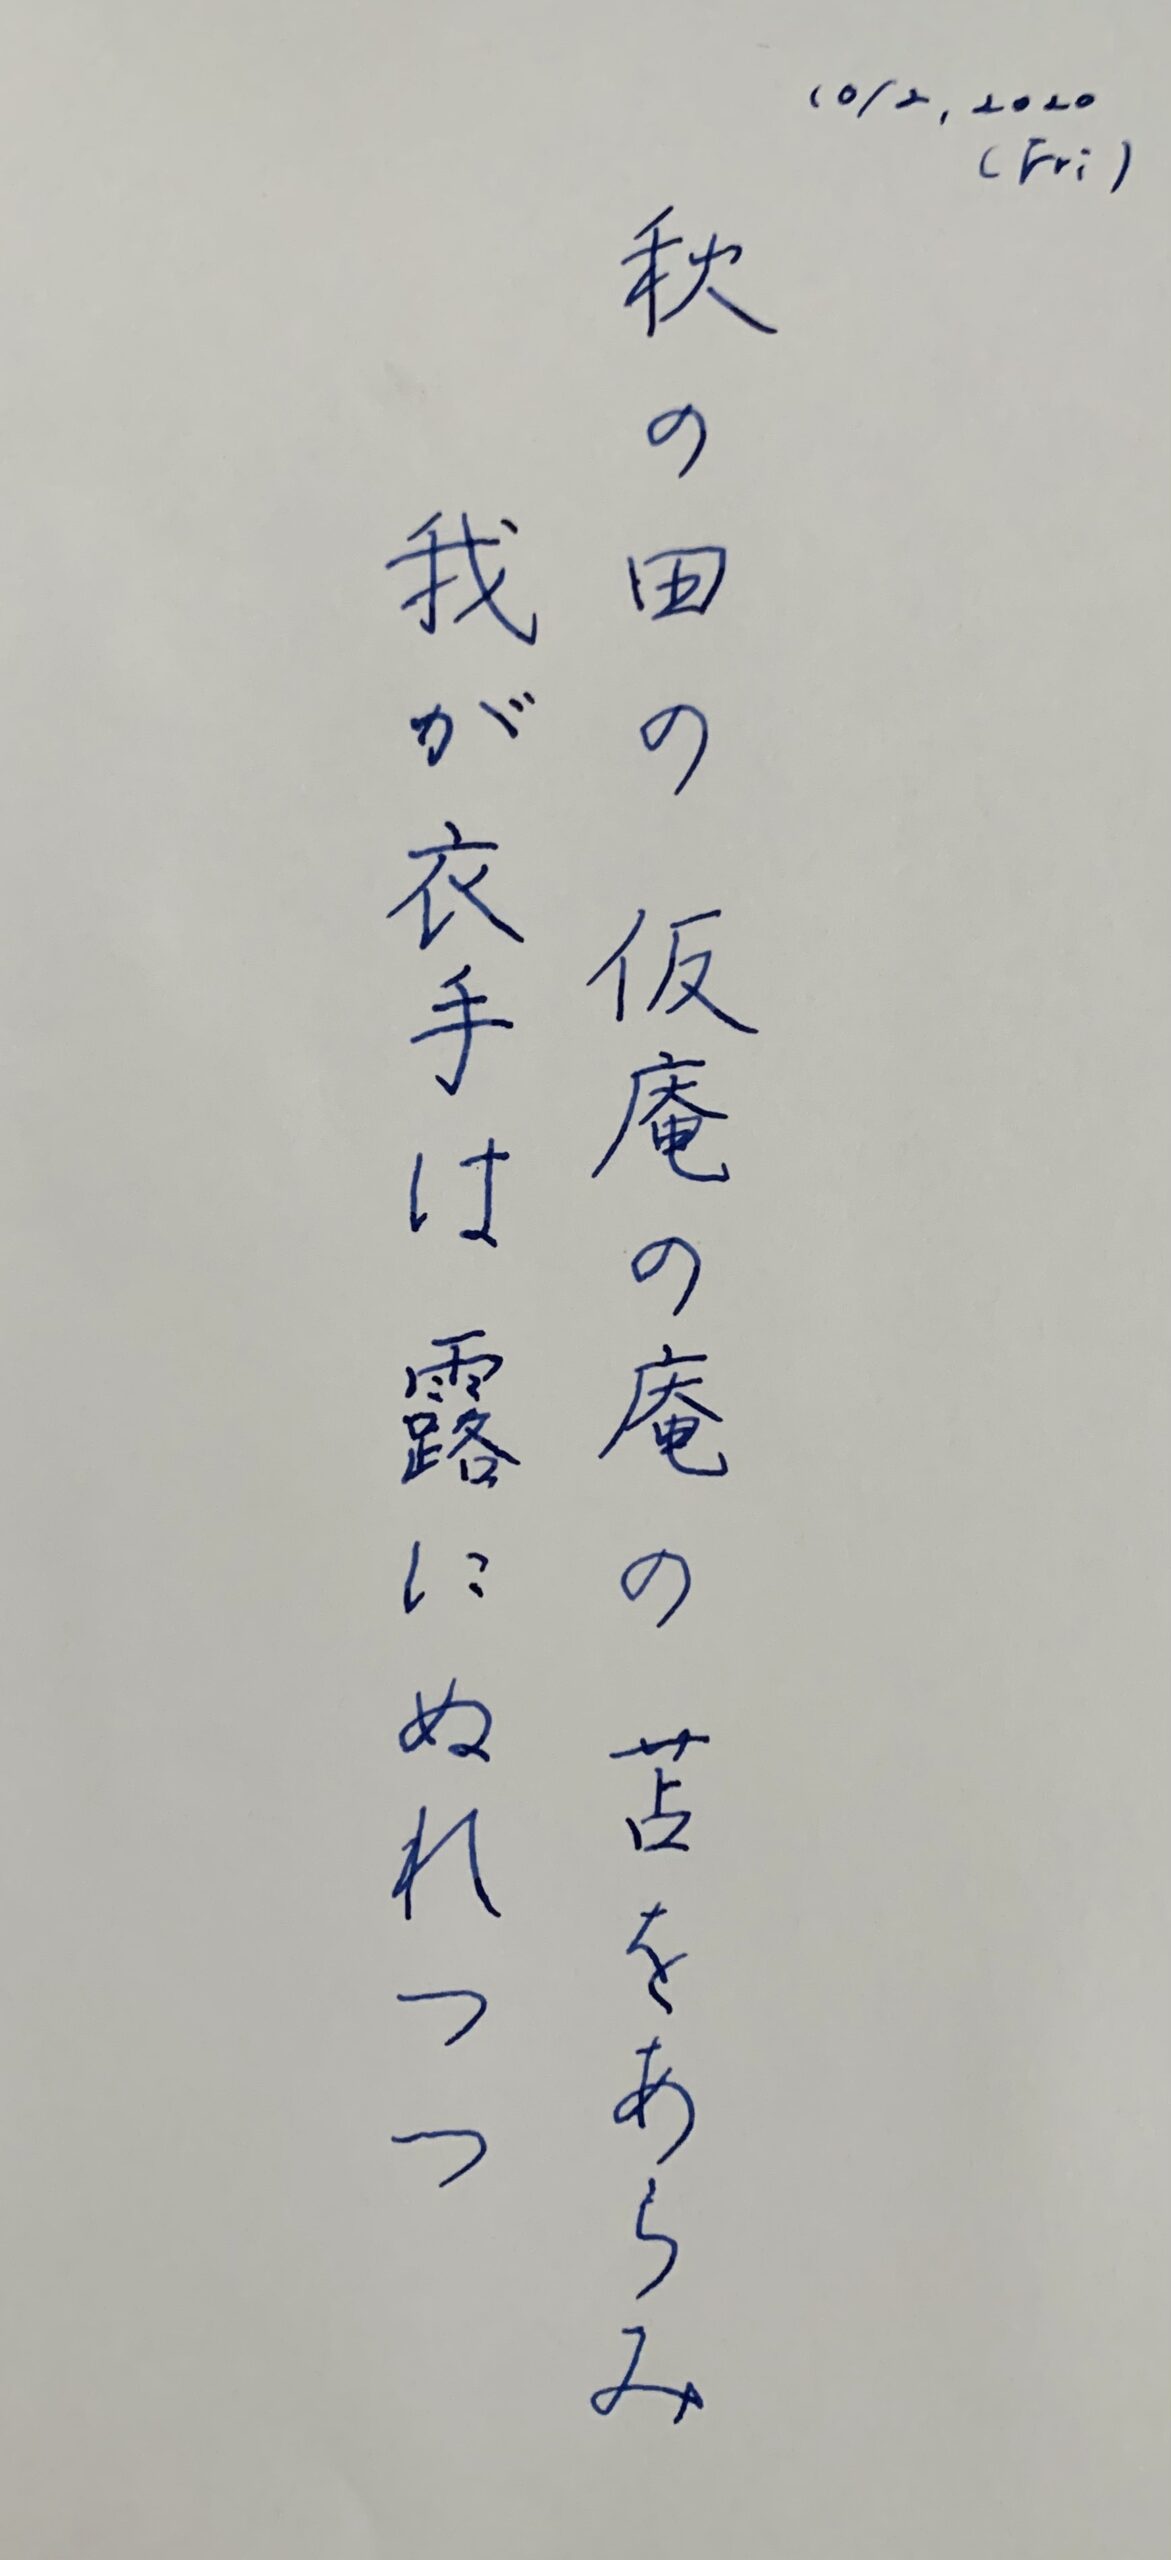 10/2, 2020
(Fri)
秋の田の 仮庵の庵の 苫をあらみ
我が衣手は 露にぬれつつ